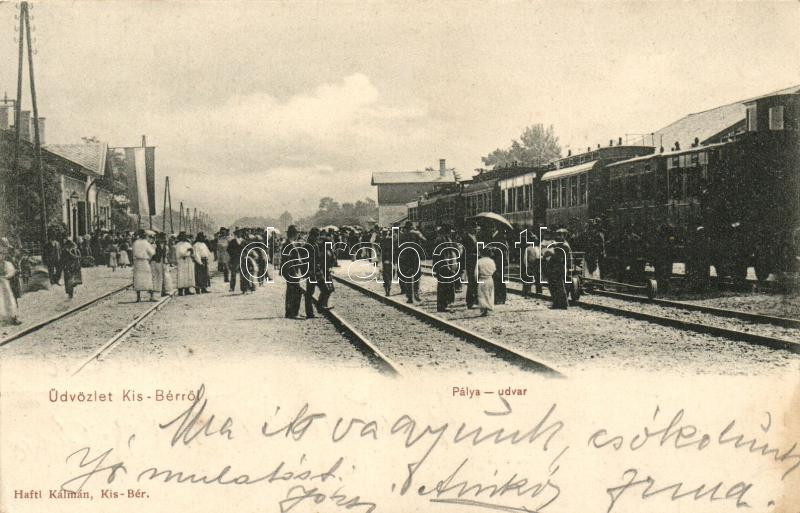 darabanth
Üdvözlet Kis-Bérről
Pálya — udvar
Ma itt vagyunk, csókolunk
Jó mulatást.
Aninkó Irma
Haftl Kálmán, Kis-Bér.